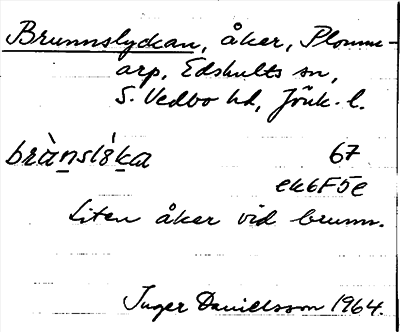 Brunnslyckan, åker, Plomme-
arp, Edshults sn,
S. Vedbo hd, Jönk. l.
67
ek6F5e
Liten åker vid brunn.
Inger Danielsson 1964.